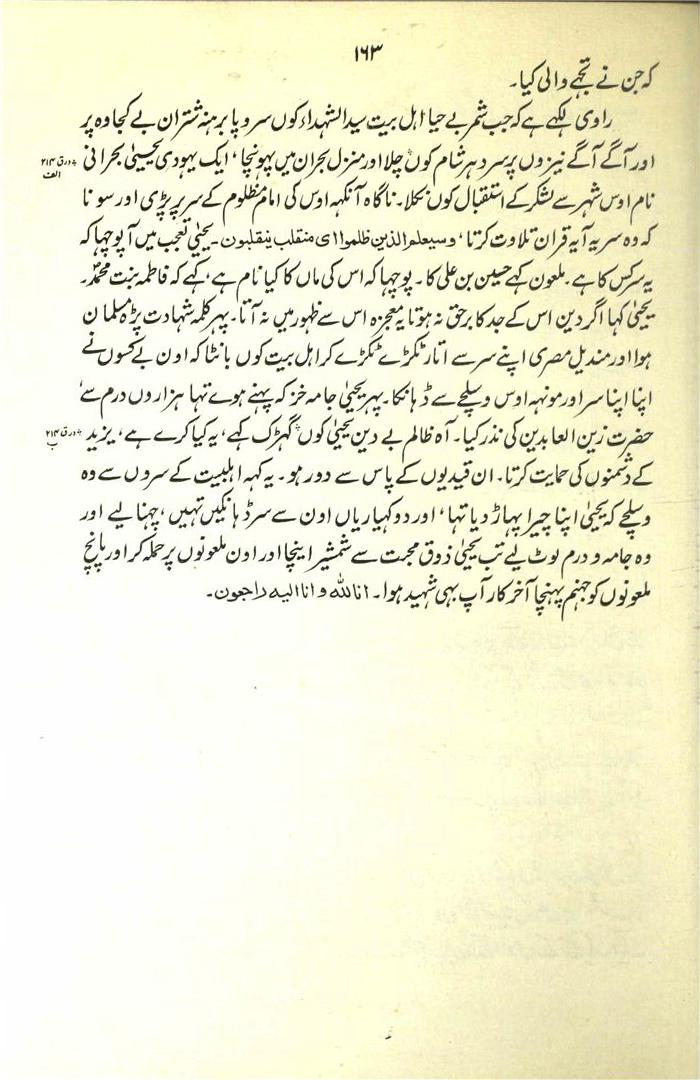 ۱۶۳
کہ جن نے تجھے والی کیا۔
راوی لکھے ہے کہ جب شمر بے حیا اہل بیت سید الشہداء کوں سر و پا برہنہ شتران بے کجاوہ پر
اور آگے آگے نیزوں پر سر دہر شام کوں چلا اور منزل بحران میں پہونچا، ایک یہودی یحییٰ بحرانی
ورق ۲۱۴
الف
نام اوس شہر سے لشکر کے استقبال کوں نکلا۔ ناگاہ آنکہہ اوس کی امام مظلوم کے سر پر پڑی اور سونا
کہ وہ سر یہ آیہ قران تلاوت کرتا، وسیعلم الذین ظلموا ای منقلب ینقلبون۔ یحییٰ تعجب میں آ پوچہا کہ
یہ سر کس کا ہے۔ ملعون کہے حسین بن علی کا۔ پوچہا کہ اس کی ماں کا کیا نام ہے، کہے کہ فاطمہ بنت محمدؐ۔
یحییٰ کہا اگر دین اس کے جد کا برحق نہ ہوتا یہ معجزہ اس سے ظہور میں نہ آتا۔ پہر کلمہ شہادت پڑہ مسلمان
ہوا اور مندیل مصری اپنے سر سے اتار ٹکڑے ٹکڑے کر اہل بیت کوں بانٹا کہ اون بے کسوں نے
اپنا اپنا سر اور مونہہ اوس وسیلے سے ڈہانکا۔ پہر یحییٰ جامہ خز کہ پہنے ہوے تہا ہزاروں درم سے
حضرت زین العابدین کی نذر کیا۔ آہ ظالم بے دین یحییٰ کوں گہڑک کہے، یہ کیا کرے ہے، یزید
ورق ۲۱۴
ب
کے دشمنوں کی حمایت کرتا۔ ان قیدیوں کے پاس سے دور ہو۔ یہ کہہ اہلبیت کے سروں سے وہ
وسیلے کہ یحییٰ اپنا چیرا پہاڑ دیا تہا، اور دوکہیاریاں اون سے سر ڈہانکیں تہیں، چہنا لیے اور
وہ جامہ و درم لوٹ لیے تب یحییٰ ذوق محبت سے شمشیر اینچا اور اون ملعونوں پر حملہ کر اور پانچ
ملعونوں کو جہنم پہنچا آخر کار آپ بہی شہید ہوا۔ انا للہ و انا الیہ راجعون۔